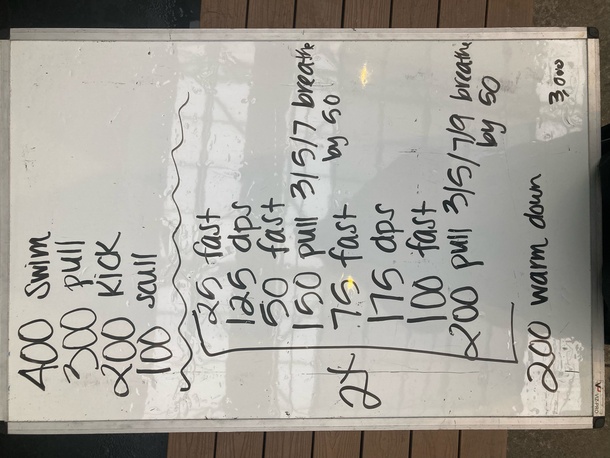 400 swim
300 pull
200 kick
100 scull
2x
25 fast
125 dps
50 fast
150 pull 3/5/7 breathe
by 50
75 fast
175 dps
100 fast
200 pull 3/5/7/9 breathe
by 50
200 warm down
3,000